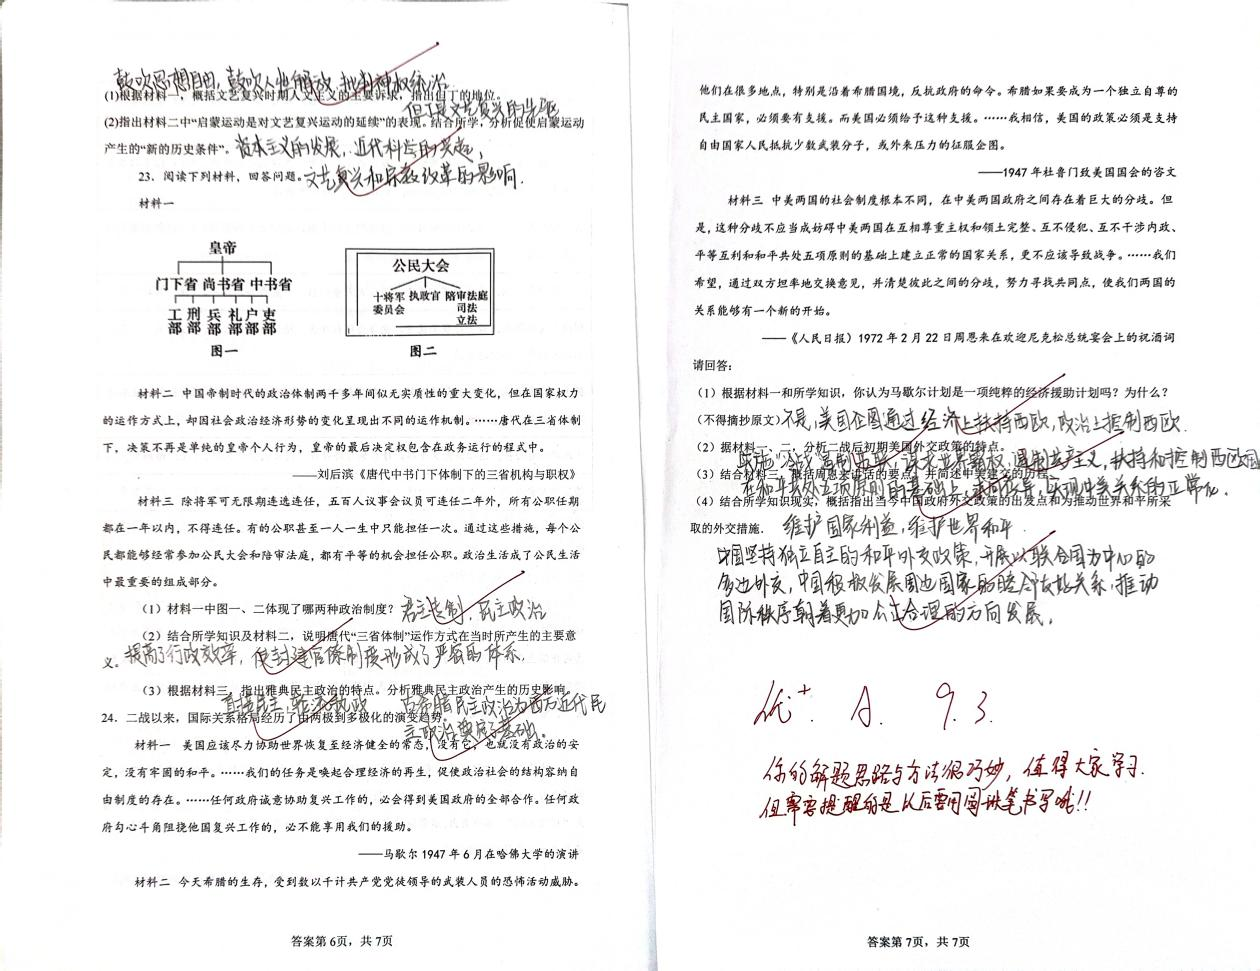 鼓吹思想自由，鼓吹人性解放，批判神权统治
(1)根据材料一，概括文艺复兴时期人文主义的主要诉求，指出但丁的地位。
但丁是文艺复兴的先驱
(2)指出材料二中“启蒙运动是对文艺复兴运动的延续”的表现。结合所学，分析促使启蒙运动
产生的“新的历史条件”。资本主义的发展，近代科学的兴起，
23．阅读下列材料，回答问题。文艺复兴和宗教改革的影响．
材料一
皇帝
门下省 尚书省 中书省
工部 刑部 兵部 礼部 户部 吏部
图一
公民大会
十将军委员会 执政官 陪审法庭 司法 立法
图二
材料二 中国帝制时代的政治体制两千多年间似无实质性的重大变化，但在国家权力
的运作方式上，却因社会政治经济形势的变化呈现出不同的运作机制。……唐代在三省体制
下，决策不再是单纯的皇帝个人行为，皇帝的最后决定权包含在政务运行的程式中。
——刘后滨《唐代中书门下体制下的三省机构与职权》
材料三 除将军可无限期连选连任，五百人议事会议员可连任二年外，所有公职任期
都在一年以内，不得连任。有的公职甚至一人一生中只能担任一次。通过这些措施，每个公
民都能够经常参加公民大会和陪审法庭，都有平等的机会担任公职。政治生活成了公民生活
中最重要的组成部分。
（1）材料一中图一、二体现了哪两种政治制度？君主专制，民主政治
（2）结合所学知识及材料二，说明唐代“三省体制”运作方式在当时所产生的主要意
义。提高了行政效率，使封建官僚制度形成了严密的体系．
（3）根据材料三，指出雅典民主政治的特点。分析雅典民主政治产生的历史影响。
直接民主，轮流执政 古希腊民主政治为西方近代民
24．二战以来，国际关系格局经历了由两极到多极化的演变趋势。
主政治奠定了基础。
材料一 美国应该尽力协助世界恢复至经济健全的常态，没有它，也就没有政治的安
定，没有牢固的和平。……我们的任务是唤起合理经济的再生，促使政治社会的结构容纳自
由制度的存在。……任何政府诚意协助复兴工作的，必会得到美国政府的全部合作。任何政
府勾心斗角阻挠他国复兴工作的，必不能享用我们的援助。
——马歇尔 1947 年 6 月在哈佛大学的演讲
材料二 今天希腊的生存，受到数以千计共产党党徒领导的武装人员的恐怖活动威胁。
答案第 6页，共 7页
他们在很多地点，特别是沿着希腊国境，反抗政府的命令。希腊如果要成为一个独立自尊的
民主国家，必须要有支援。而美国必须给予这种支援。……我相信，美国的政策必须是支持
自由国家人民抵抗少数武装分子，或外来压力的征服企图。
——1947 年杜鲁门致美国国会的咨文
材料三 中美两国的社会制度根本不同，在中美两国政府之间存在着巨大的分歧。但
是，这种分歧不应当成妨碍中美两国在互相尊重主权和领土完整、互不侵犯、互不干涉内政、
平等互利和和平共处五项原则的基础上建立正常的国家关系，更不应该导致战争。……我们
希望，通过双方坦率地交换意见，并清楚彼此之间的分歧，努力寻找共同点，使我们两国的
关系能够有一个新的开始。
——《人民日报》1972 年 2 月 22 日周恩来在欢迎尼克松总统宴会上的祝酒词
请回答：
（1）根据材料一和所学知识，你认为马歇尔计划是一项纯粹的经济援助计划吗？为什么？
（不得摘抄原文）不是，美国企图通过经济上扶持西欧，政治上控制西欧．
（2）据材料一、二，分析二战后初期美国外交政策的特点。
实施“冷战”遏制苏联，谋求世界霸权，遏制共产主义，扶持和控制西欧国
（3）结合材料三，概括周恩来讲话的要点，并简述中美建交的历程。
在和平共处五项原则的基础上，求同存异，实现中美关系的正常化．
（4）结合所学知识现实，概括指出当今中国政府外交政策的出发点和为推动世界和平所采
取的外交措施．维护国家利益，维护世界和平
中国坚持独立自主的和平外交政策，开展以联合国为中心的
多边外交，中国积极发展周边国家的睦邻友好关系，推动
国际秩序朝着更加公正合理的方向发展．
优⁺． A． 9.3．
你的解题思路与方法很巧妙，值得大家学习．
但需要提醒的是以后要用圆珠笔书写哦!!
答案第 7页，共 7页